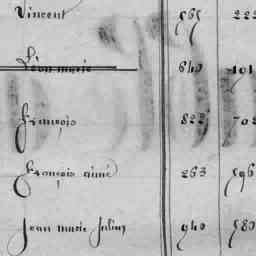 Vincent 565 222
Léon marie 640 101
François 822 702
François aimé 263 596
Jean marie Julien 940 580